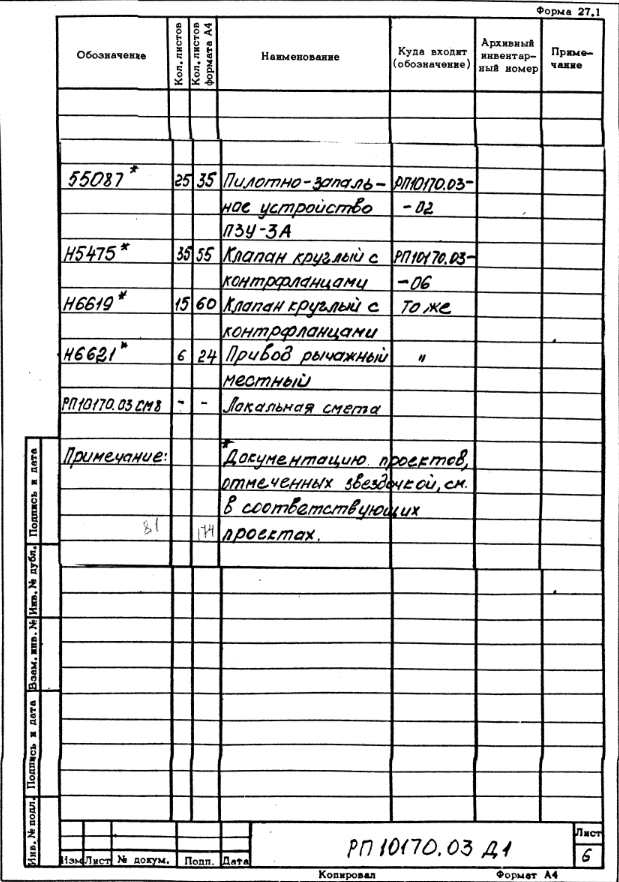 Форма 27.1
Обозначение Кол. листов Кол. листов формата А4 Наименование Куда входит (обозначение) Архивный инвентар-ный номер Приме-чание
55087* 25 35 Пилотно-запаль- РП10170.03-
ное устройство -02
ПЗУ-3А
Н5475* 35 55 Клапан круглый с РП10170.03-
контрфланцами -06
Н6619* 15 60 Клапан круглый с То же
контрфланцами
Н6621* 6 24 Привод рычажный "
местный
РП10170.03 СМ8 - - Локальная смета
Примечание: *Документацию проектов,
отмеченных звездочкой, см.
в соответствующих
81 174 проектах.
Инв. № подл. Подпись и дата Взам. инв. № Инв. № дубл. Подпись и дата
Изм Лист № докум. Подп. Дата
РП 10170.03 Д1
Лист
6
Копировал Формат А4